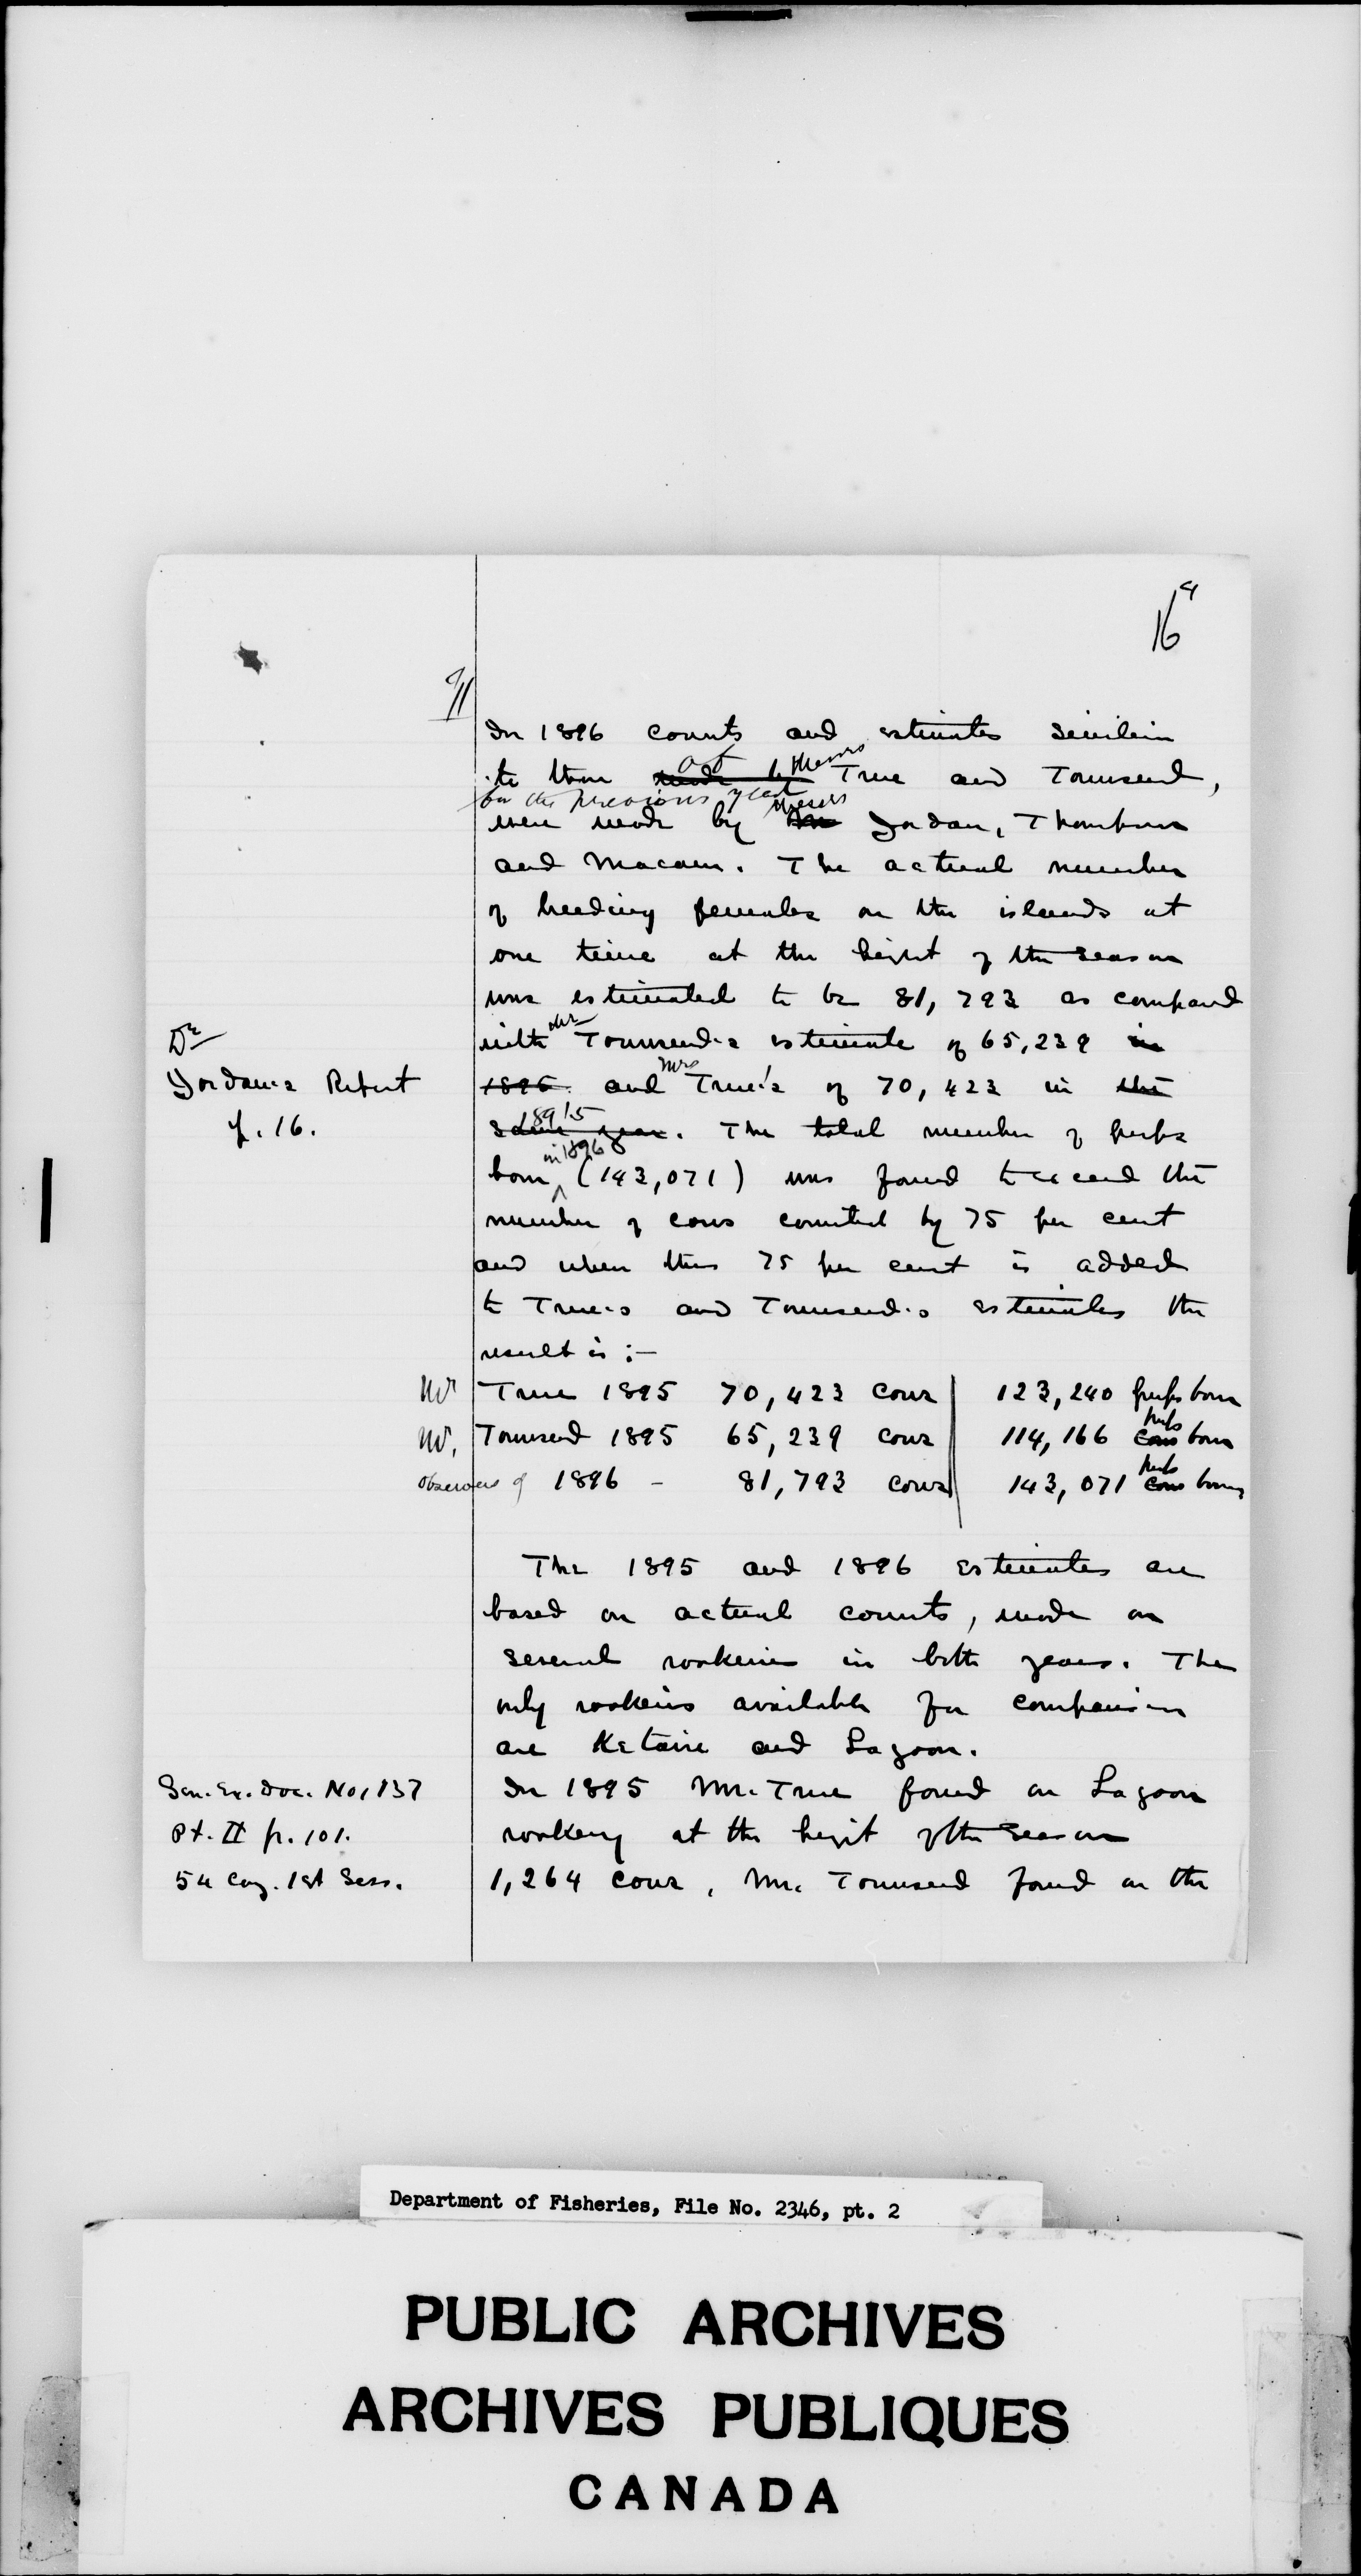 16a
In 1896 counts and estimates similar
to those made by of Messrs True and Townsend,
for the previous year
were made by Messrs Jordan, Thompson
and Macoun. The actual number
of breeding females on the islands at
one time at the height of the season
was estimated to be 81,793 as compared
with Mr Townsend's estimate of 65,239 in
Dr
Jordan's Report
p. 16.
1895 and Mr True's of 70,423 in the
same year 1895. The total number of pups
born in 1896 (143,071) was found to exceed the
number of cows counted by 75 per cent
and when this 75 per cent is added
to True's and Townsend's estimates the
result is :—
Mr True 1895 70,423 cows 123,240 pups born
Mr. Townsend 1895 65,239 cows 114,166 cows pups born
Observers of 1896 - 81,793 cows 143,071 cows pups born
The 1895 and 1896 estimates are
based on actual counts, made on
several rookeries in both years. The
only rookeries available for comparison
are Ketavie and Lagoon.
Sen. Ex. Doc. No. 137
Pt. II p. 101.
54 Cong. 1st Sess.
In 1895 Mr. True found on Lagoon
rookery at the height of the season
1,264 cows, Mr. Townsend found on the
Department of Fisheries, File No. 2346, pt. 2
PUBLIC ARCHIVES
ARCHIVES PUBLIQUES
CANADA